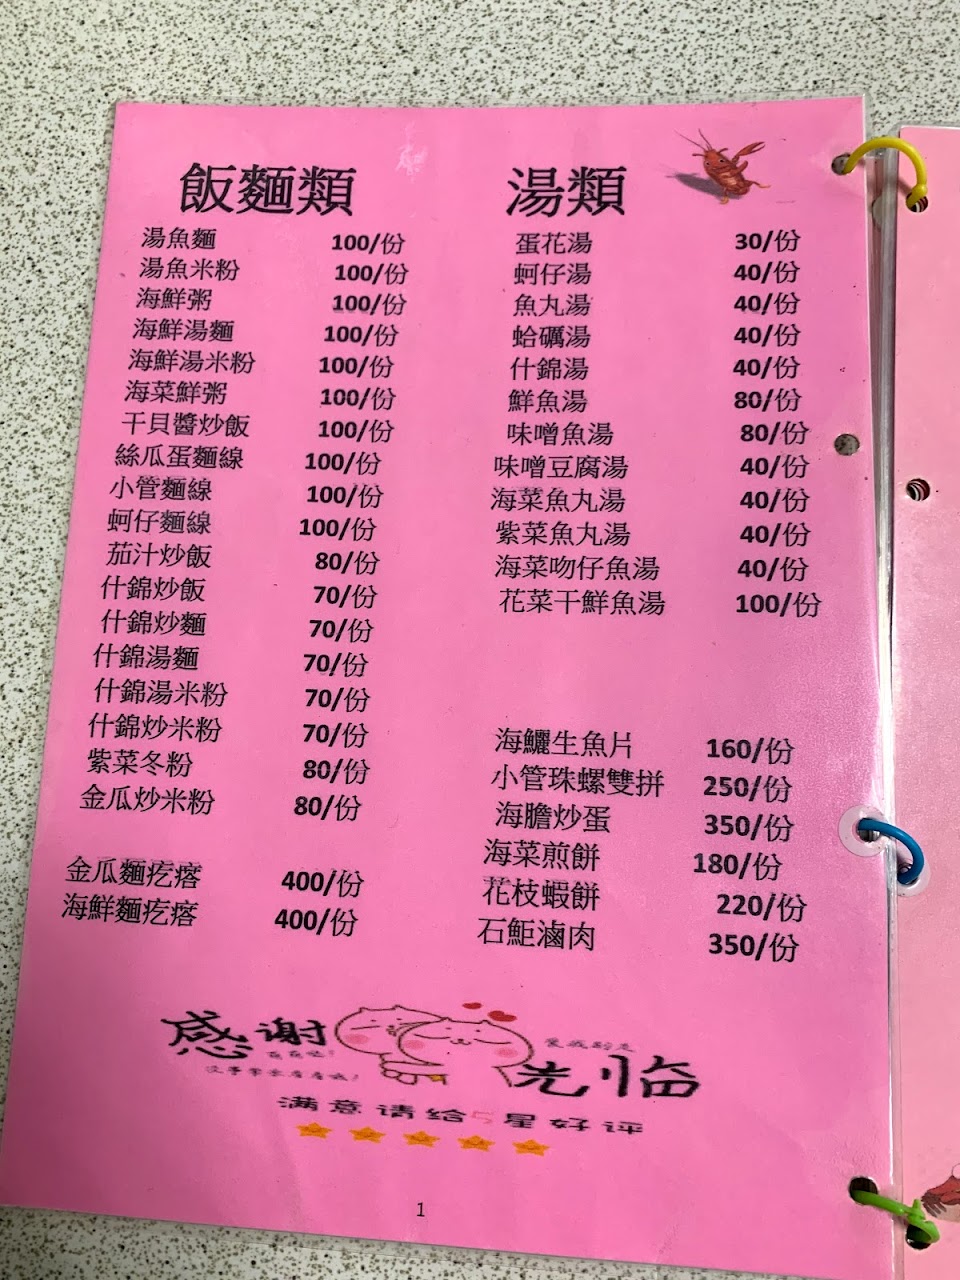 飯麵類
湯魚麵 100/份
湯魚米粉 100/份
海鮮粥 100/份
海鮮湯麵 100/份
海鮮湯米粉 100/份
海菜鮮粥 100/份
干貝醬炒飯 100/份
絲瓜蛋麵線 100/份
小管麵線 100/份
蚵仔麵線 100/份
茄汁炒飯 80/份
什錦炒飯 70/份
什錦炒麵 70/份
什錦湯麵 70/份
什錦湯米粉 70/份
什錦炒米粉 70/份
紫菜冬粉 80/份
金瓜炒米粉 80/份
金瓜麵疙瘩 400/份
海鮮麵疙瘩 400/份
湯類
蛋花湯 30/份
蚵仔湯 40/份
魚丸湯 40/份
蛤礪湯 40/份
什錦湯 40/份
鮮魚湯 80/份
味噌魚湯 80/份
味噌豆腐湯 40/份
海菜魚丸湯 40/份
紫菜魚丸湯 40/份
海菜吻仔魚湯 40/份
花菜干鮮魚湯 100/份
海鱺生魚片 160/份
小管珠螺雙拼 250/份
海膽炒蛋 350/份
海菜煎餅 180/份
花枝蝦餅 220/份
石鮔滷肉 350/份
感谢
光临
没事常来看看哦!
满意请给5星好评
1